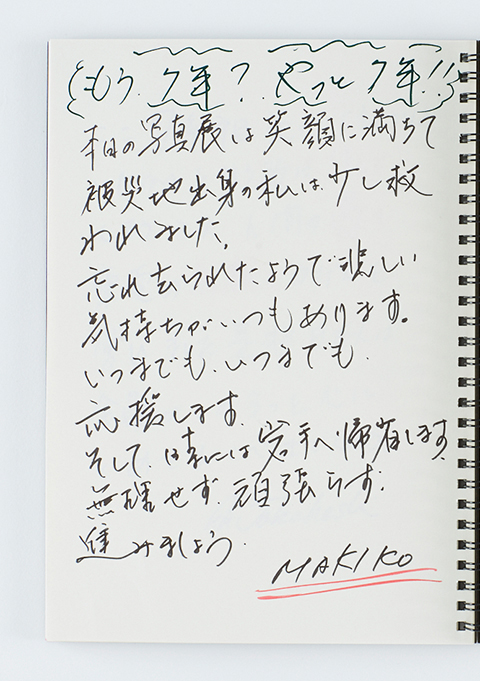 もう7年？やっと7年！！
本日の写真展は笑顔に満ちて
被災地出身の私は少し救
われました。
忘れ去られたようで悲しい
気持ちがいつもあります。
いつまでも、いつまでも、
応援します。
そして、時には岩手へ帰省します。
無理せず、頑張らず、
進みましょう。
MAKIKO